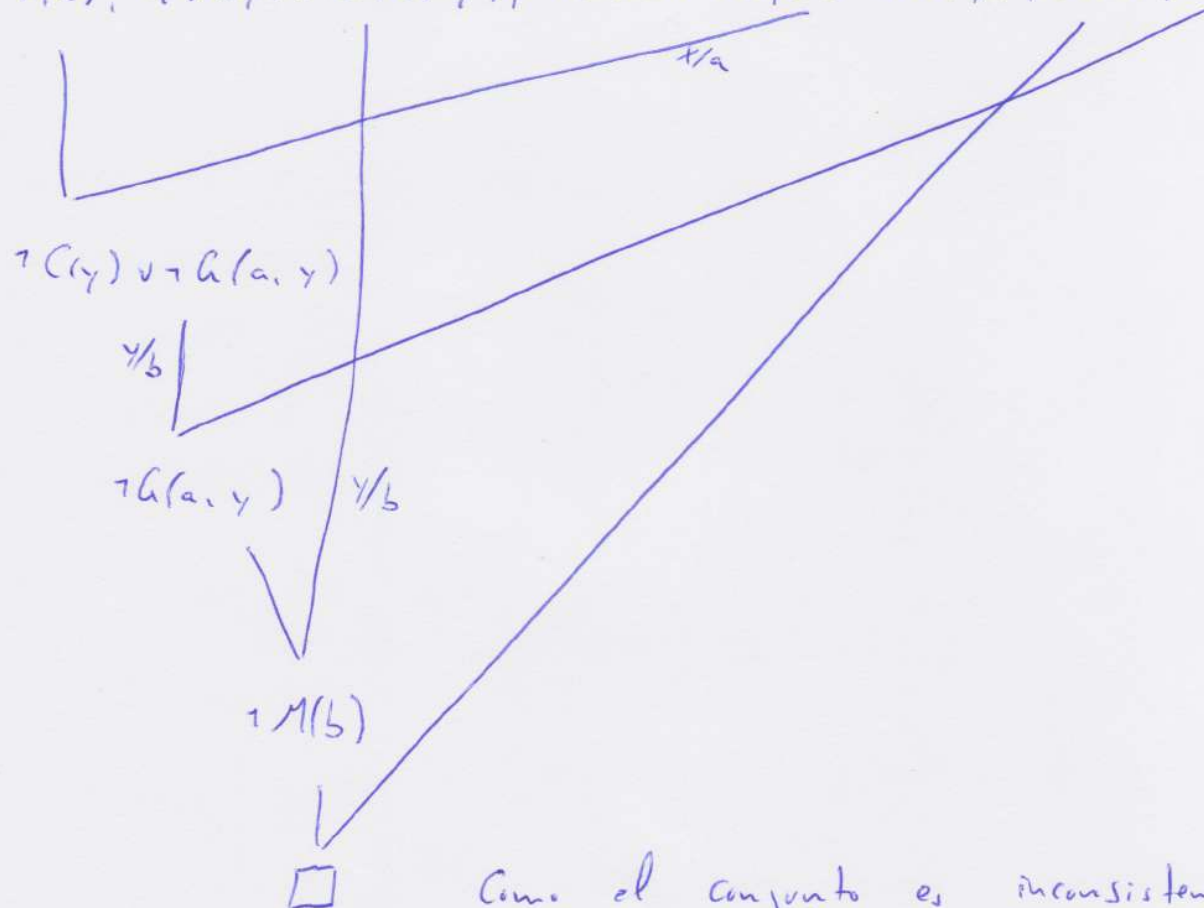 x/a
¬C(y) ∨ ¬G(a, y)
y/b
¬G(a, y) y/b
¬M(b)
□ Como el conjunto es inconsisten